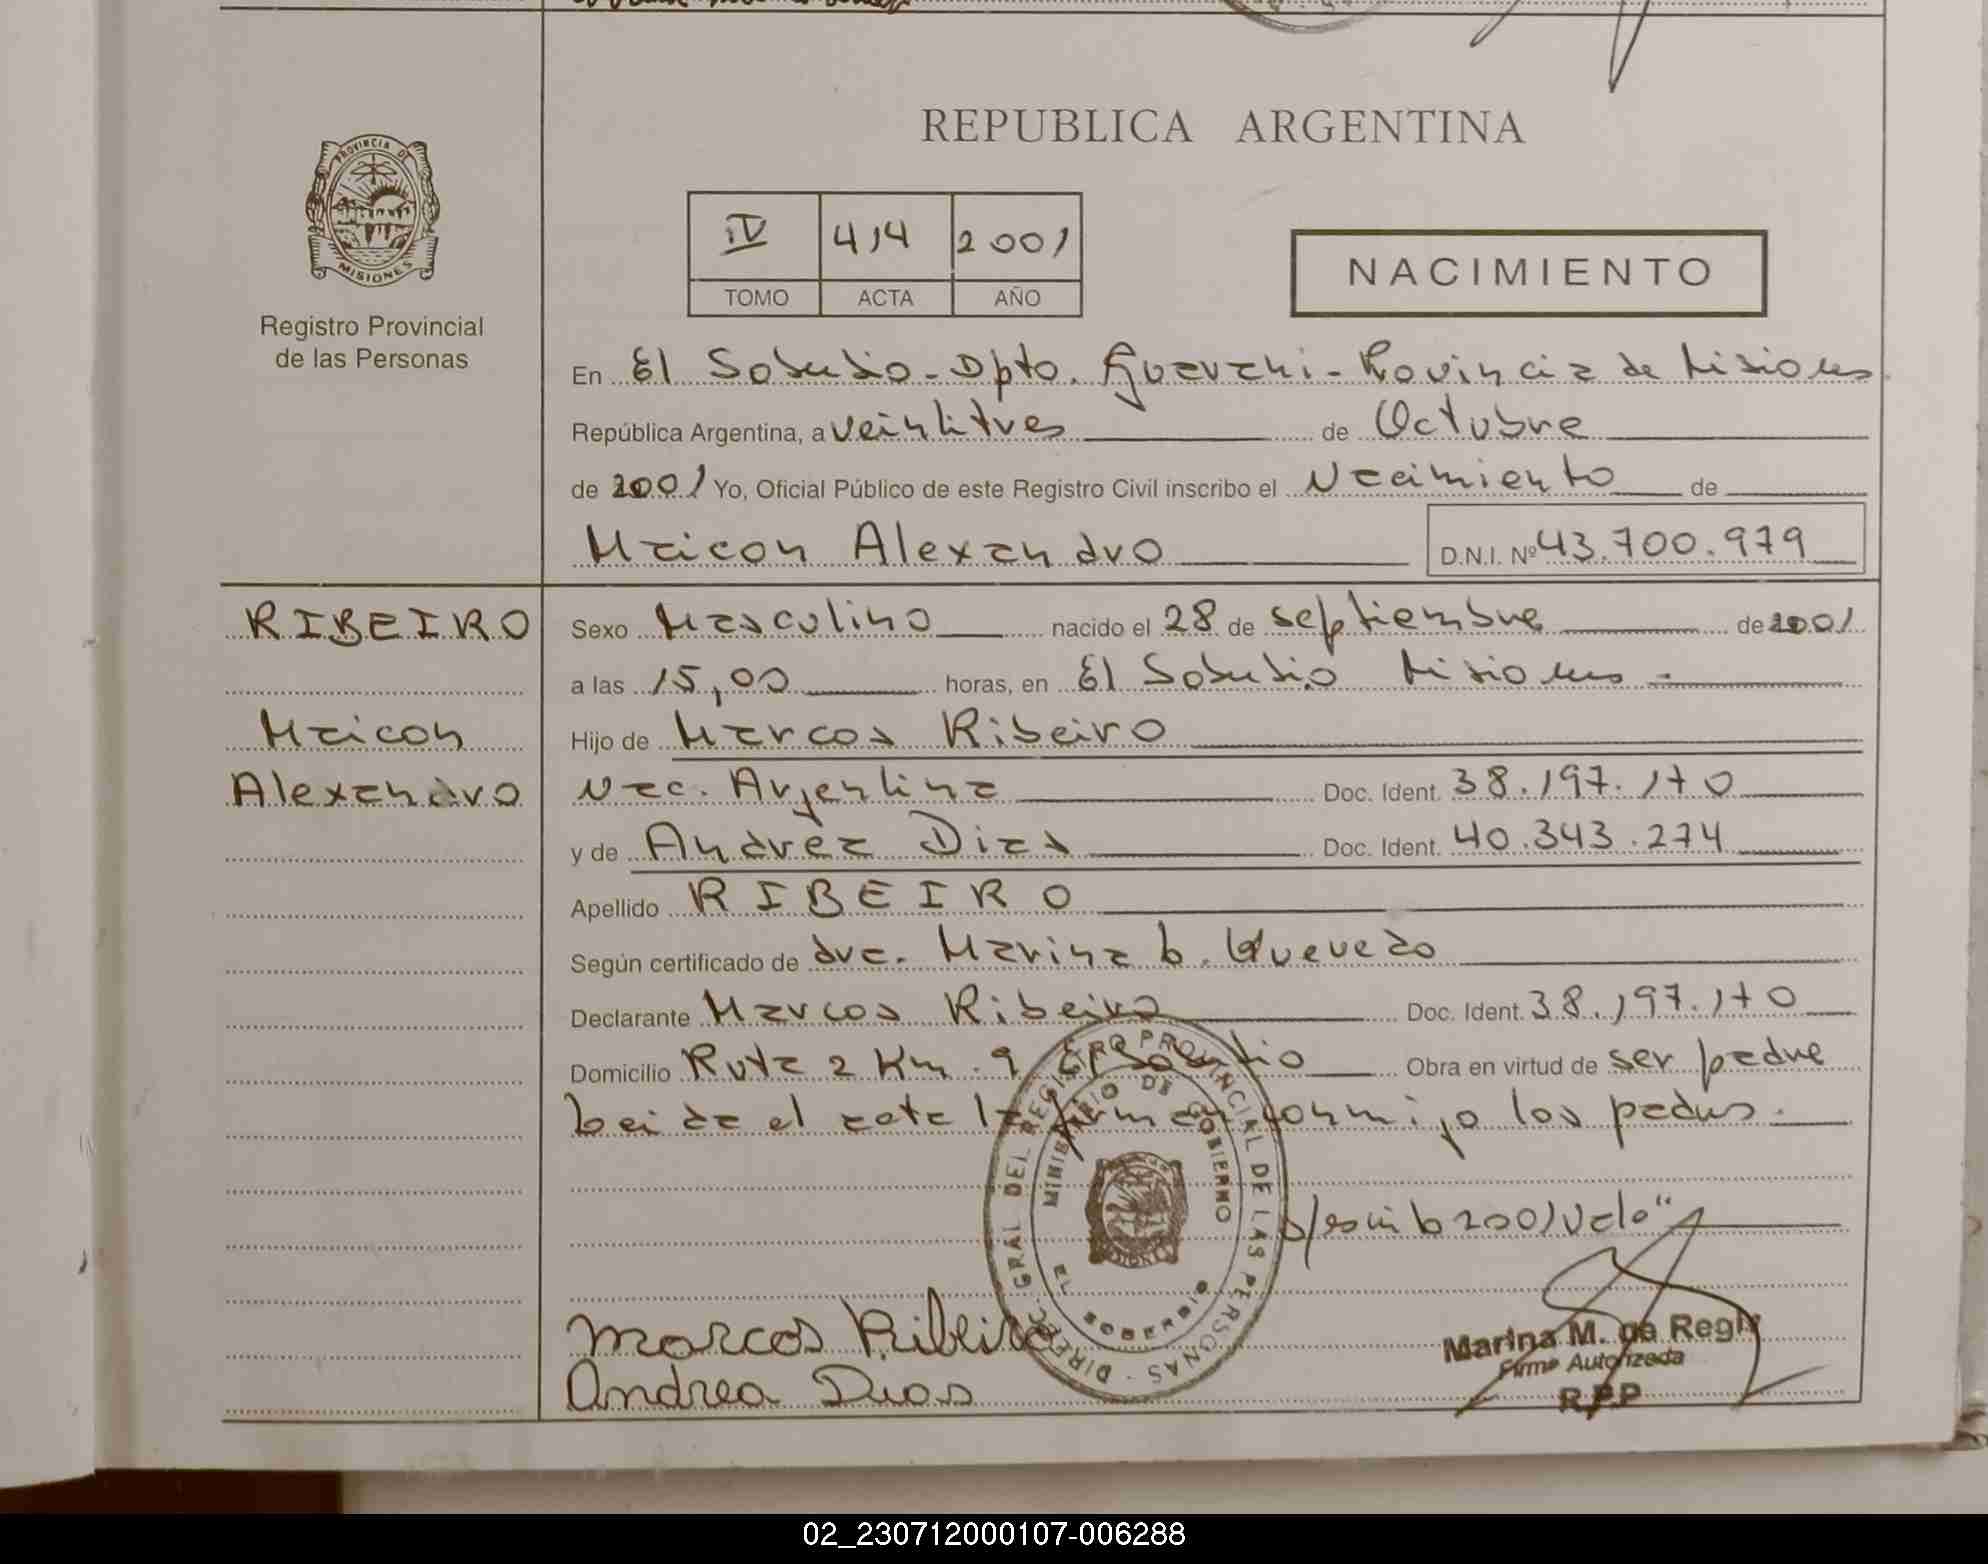 REPUBLICA ARGENTINA
PROVINCIA DE
MISIONES
Registro Provincial
de las Personas
IV 414 2001
TOMO ACTA AÑO
NACIMIENTO
En El Soberbio - Dpto. Guarani - Provincia de Misiones
República Argentina, a veintitres de Octubre
de 2001 Yo, Oficial Público de este Registro Civil inscribo el Nacimiento de
Maicon Alexandro D.N.I. Nº 43.700.979
RIBEIRO
Maicon
Alexandro
Sexo Masculino nacido el 28 de septiembre de 2001
a las 15,00 horas, en El Soberbio Misiones -
Hijo de Marcos Ribeiro
Nac. Argentina Doc. Ident. 38.197.170
y de Andrea Dias Doc. Ident. 40.343.274
Apellido RIBEIRO
Según certificado de dra. Marina b. Quevedo
Declarante Marcos Ribeiro Doc. Ident. 38.197.170
Domicilio Ruta 2 Km. 9 El Soberbio Obra en virtud de ser padre
Leida el acta la firman conmigo los padres.
2001 Vale"
Marcos Ribeiro
Andrea Dias
DIREC. GRAL DEL REGISTRO PROVINCIAL DE LAS PERSONAS -
MINISTERIO DE GOBIERNO
EL SOBERBIO
Marina M. de Regly
Firma Autorizada
R.P.P
02_230712000107-006288